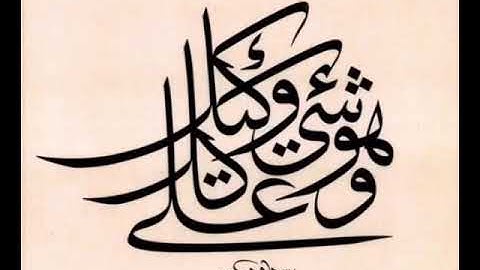 وهو على كل شئ وكيل